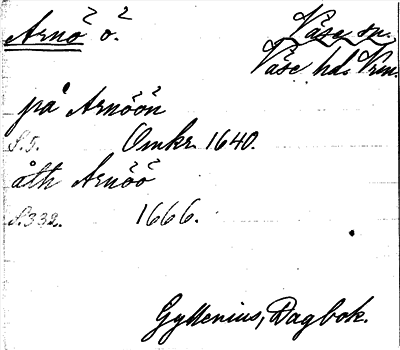 Arnö ö. Väse sn.
Väse hd. Vrm.
på Arnöön
S. 5. Omkr. 1640.
åth Arnöö
S. 332. 1666.
Gyllenius, Dagbok.